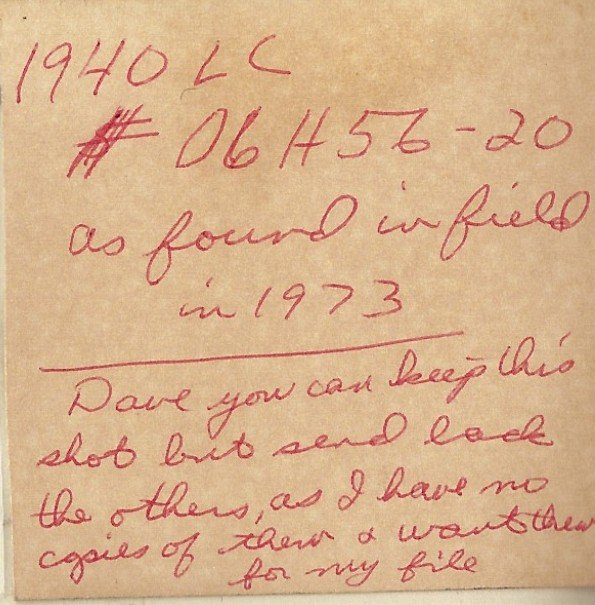 1940 LC
# 06H56-20
as found in field
in 1973
Dave you can keep this
shot but send back
the others, as I have no
copies of them & want them
for my file